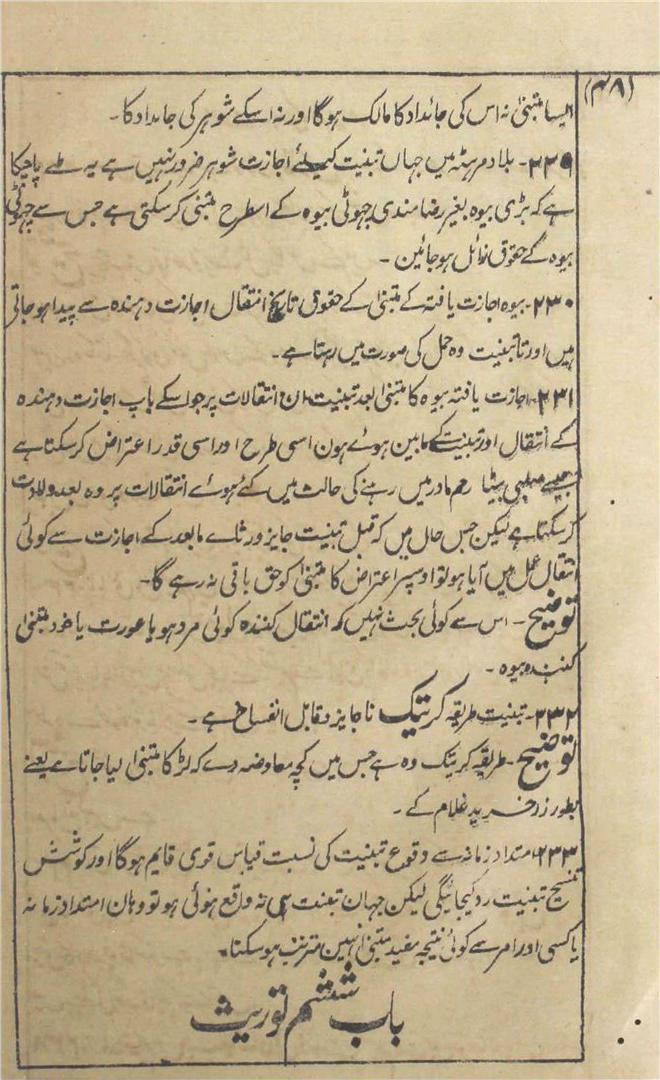 (۴۸)
ایسا متبنیٰ نہ اس کی جائداد کا مالک ہوگا اور نہ اسکے شوہر کی جائداد کا ۔
۲۲۹۔ بلاد مرہٹہ میں جہاں تبنیت کیلئے اجازت شوہر ضرور نہیں ہے یہ طے پاچکا
ہے کہ بڑی بیوہ بغیر رضامندی چہوٹی بیوہ کے اسطرح متبنیٰ کرسکتی ہے جس سے چہوٹی
بیوہ کے حقوق زائل ہوجائین ۔
۲۳۰۔ بیوہ اجازت یافتہ کے متبنیٰ کے حقوق تاریخ انتقال اجازت دہندہ سے پیدا ہوجاتی
ہیں اور تا تبنیت وہ حمل کی صورت میں رہتا ہے۔
۲۳۱۔ اجازت یافتہ بیوہ کا متبنیٰ بعد تبنیت ان انتقالات پر جو اسکے باپ اجازت دہندہ
کے انتقال اور تبنیت کے مابین ہوئے ہون اسی طرح اور اسی قدر اعتراض کرسکتا ہے
جیسے صلبی بیٹا رحم مادر میں رہنے کی حالت میں کئے ہوئے انتقالات پر وہ بعد ولادت
کرسکتا ہے لیکن جس حال میں کہ قبل تبنیت جایز ورثاے مابعد کے اجازت سے کوئی
انتقال عمل میں آیا ہو تو اوسپر اعتراض کا متبنیٰ کو حق باقی نہ رہے گا۔
توضیح ۔ اس سے کوئی بحث نہیں کہ انتقال کنندہ کوئی مرد ہو یا عورت یا خود متبنیٰ
کنندہ بیوہ ۔
۲۳۲۔ تبنیت طریقہ کریتک ناجایز و قابل انفساخ ہے ۔
توضیح ۔ طریقہ کریتک وہ ہے جس میں کچہ معاوضہ دے کہ لڑکا متبنیٰ لیا جاتا ہے یعنے
بطور زر خرید غلام کے ۔
۲۳۳۔ امتداد زمانہ سے وقوع تبنیت کی نسبت قیاس قوی قایم ہوگا اور کوشش
تنسیخ تبنیت رد کیجائیگی لیکن جہان تبنیت ہی نہ واقع ہوئی ہو تو وہان امتداد زمانہ
یا کسی اور امر سے کوئی نتیجہ مفید متبنیٰ نہین مترتب ہوسکتا۔
باب ششم توریث